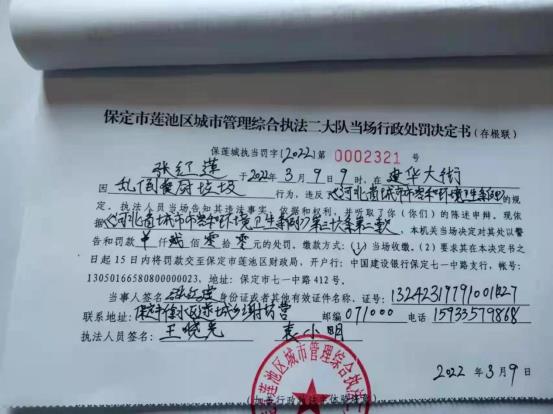 保定市莲池区城市管理综合执法二大队当场行政处罚决定书(存根联)
保莲城执当罚字[2022]第 0002321 号
张红莲 于2022年3月9日9时,在建华大街
因 乱倒餐厨垃圾 行为,违反了《河北省城市市容和环境卫生条例》的规
定。执法人员当场告知其违法事实、依据和权利,并听取了你(你们)的陈述申辩。现依
据《河北省城市市容和环境卫生条例》第 条第二款 。本机关当场决定对其处以警
告和罚款 仟 佰零拾零元的处罚。缴款方式:(1)当场收缴。(2)要求其在本决定书之
日起15日内将罚款交至保定市莲池区财政局,开户行:中国建设银行保定七一中路支行,帐号:
13050166580800000023,地址:保定市七一中路412号。
当事人签名 张红莲 身份证或者其他有效证件名称、证号:13242317791001827
联系地址:保定市 邮编071000 电话15933579868
执法人员签名:王晓光 袁小明
莲池区城市管理综合执法
2022年3月9日